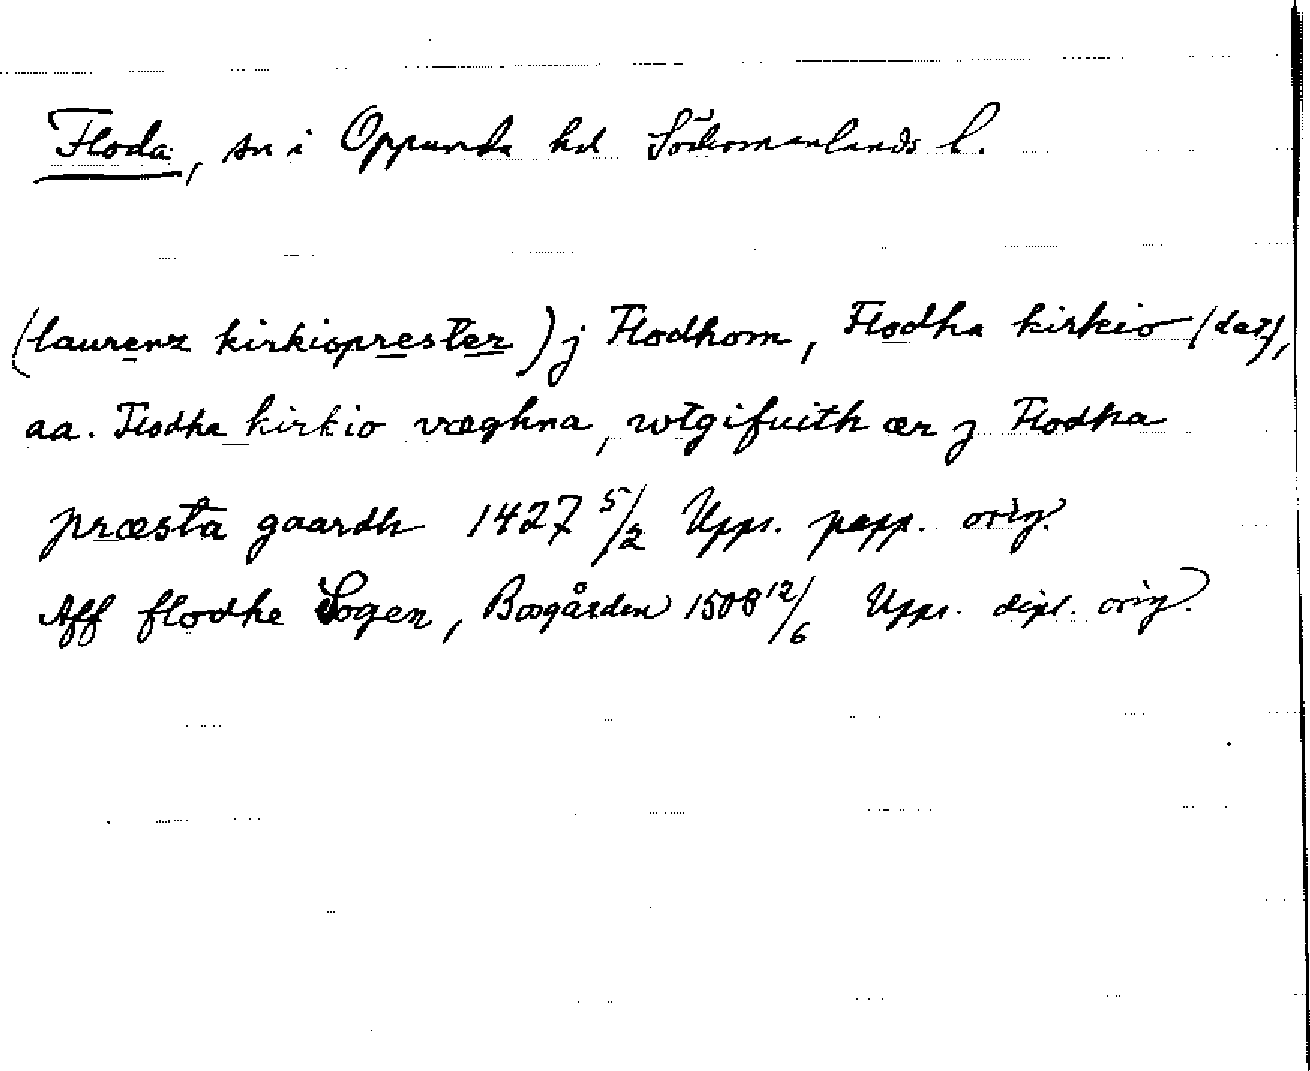 Floda, sn i Oppunda hd Södermanlands l.
(laurenz kirkioprester) j Flodhom, Flodha kirkio (dat),
aa. Flodha kirkio væghna, wtgifuith ær j Flodha
præsta gaardh 1427 5/2 Upps. papp. orig.
Aff flodhe Sogen, Bosgården 1508 12/6 Upps. dipl. orig.